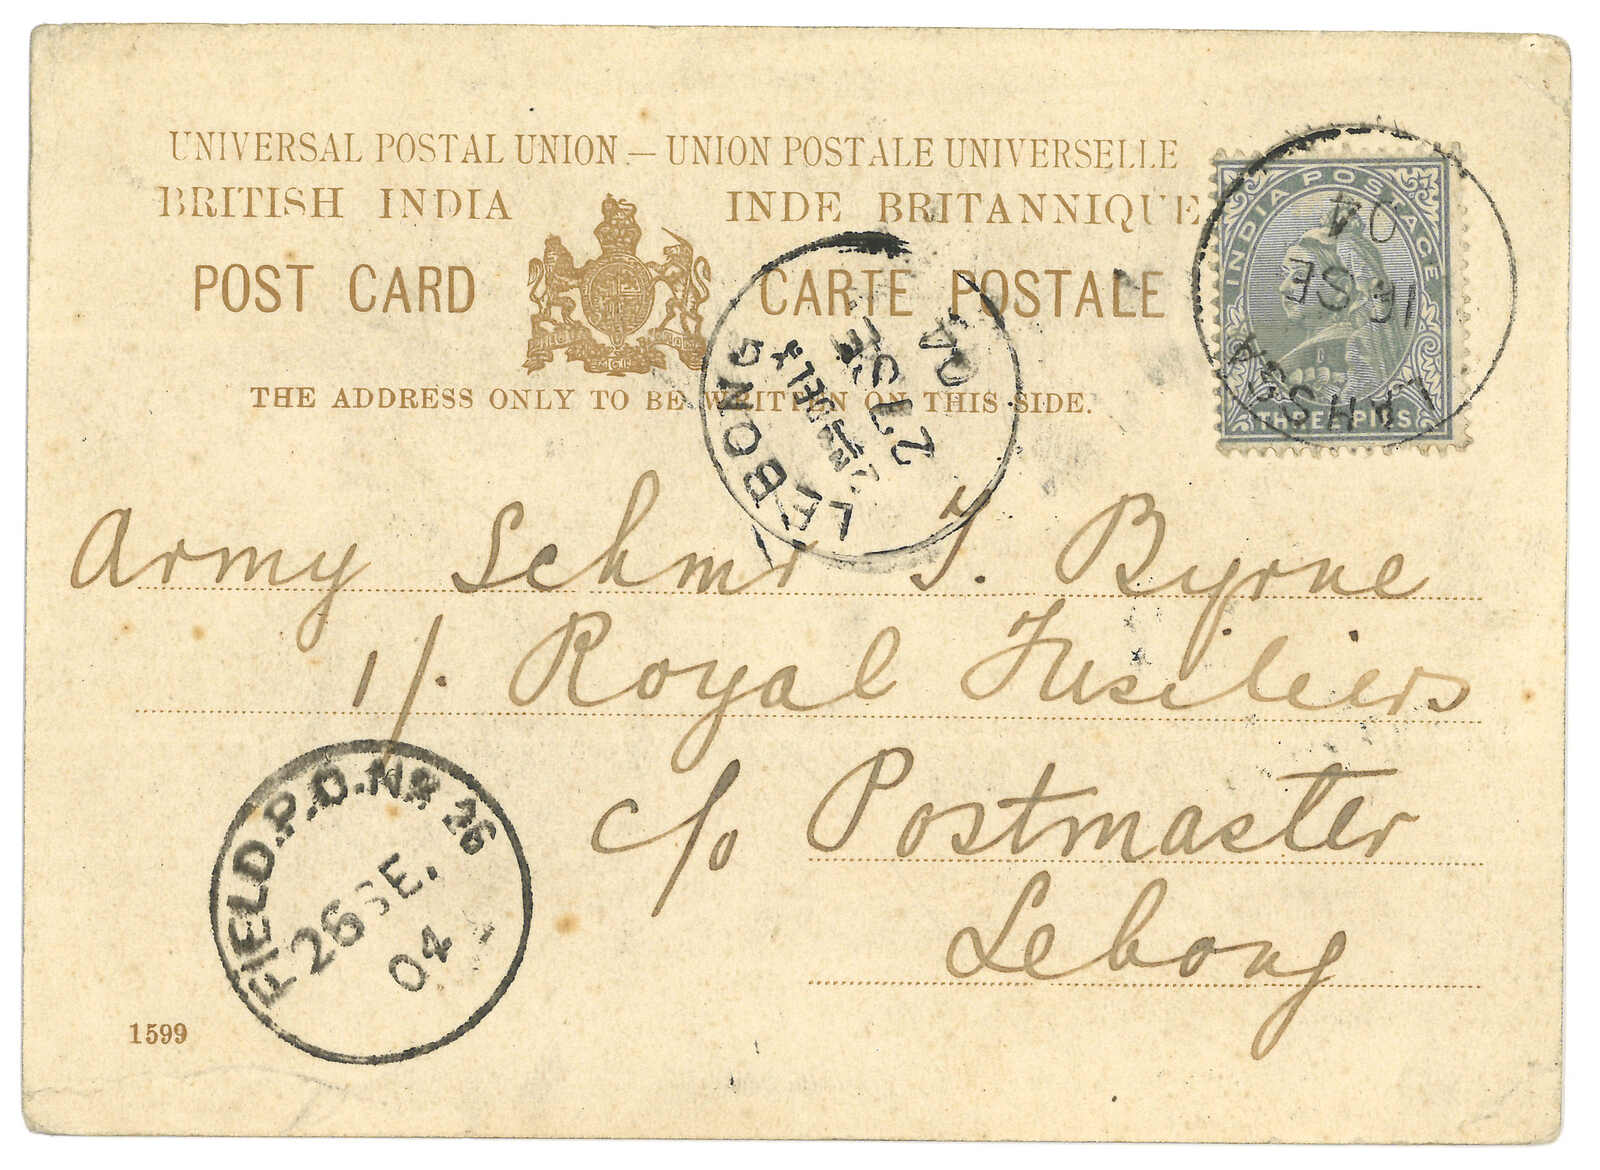 UNIVERSAL POSTAL UNION.—UNION POSTALE UNIVERSELLE
BRITISH INDIA INDE BRITANNIQUE
POST CARD CARTE POSTALE
THE ADDRESS ONLY TO BE WRITTEN ON THIS SIDE.
INDIA POSTAGE
THREE PIES
LAHSSA
SE
04
LEBONG
27 SE
04
Army Schmr T. Byrne
1/. Royal Fusiliers
c/o Postmaster
Lebong
FIELD.P.O.No 26
26 SE.
04
1599